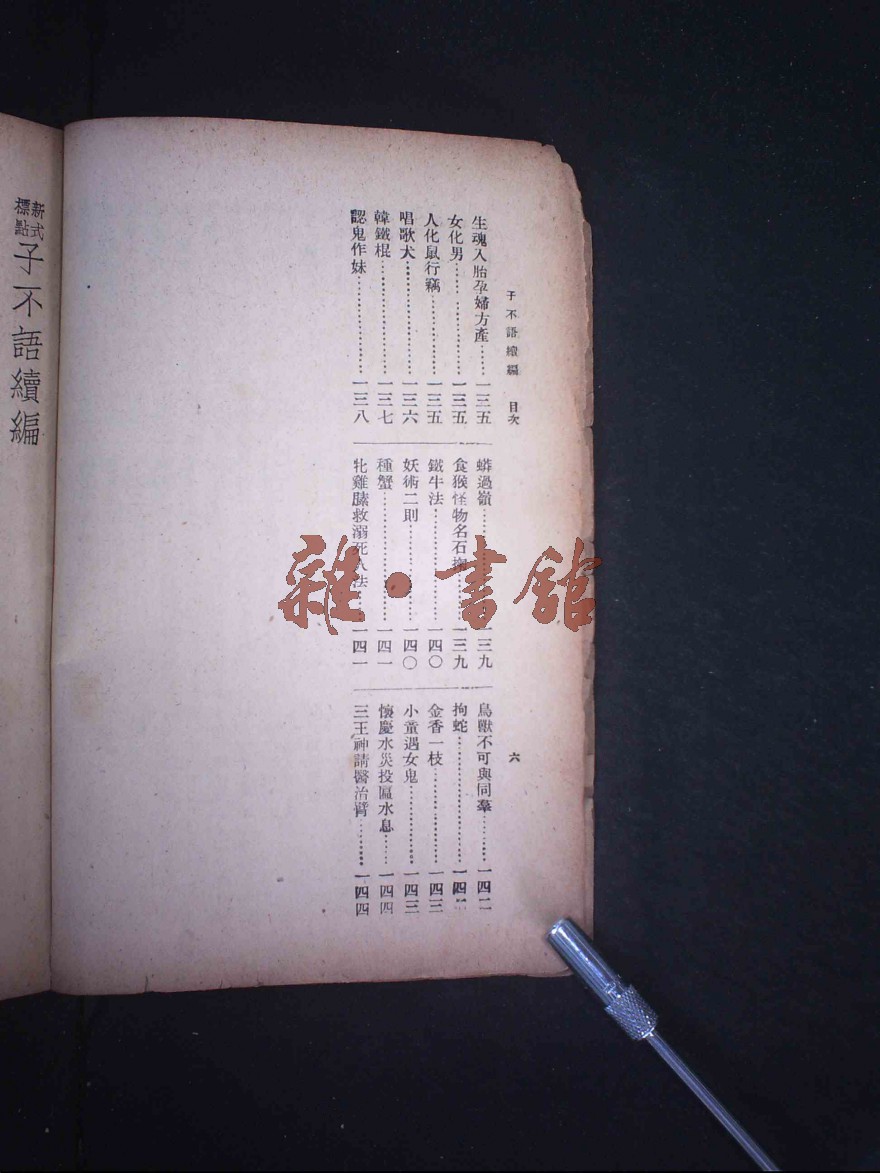 子不語續編　目次　六
生魂入胎孕婦方產……一三五
女化男……一三五
人化鼠行竊……一三五
唱歌犬……一三六
韓鐵棍……一三七
認鬼作妹……一三八
蟒過嶺……一三九
食猴怪物名石……一三九
鐵牛法……一四〇
妖術二則……一四〇
種蟹……一四一
牝雞臊救溺死人法……一四一
鳥獸不可與同羣……一四二
拘蛇……一四
金香一枝……一四三
小童遇女鬼……一四三
懷慶水災投匾水息……一四四
三王神請醫治臂……一四四
新式標點子不語續編
雜·書館